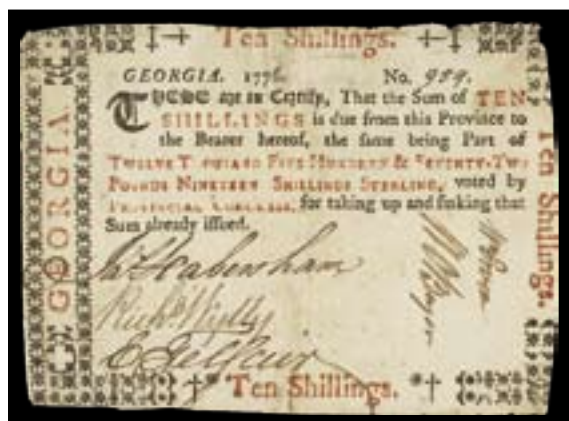 Ten Shillings.
GEORGIA. 1776. No. 959.
THESE are to Certify, That the Sum of TEN
SHILLINGS is due from this Province to
the Bearer hereof, the same being Part of
TWELVE THOUSAND FIVE HUNDRED & SEVENTY-TWO
POUNDS NINETEEN SHILLINGS STERLING, voted by
PROVINCIAL CONGRESS, for taking up and sinking that
Sum already issued.
Jas Habersham
Richd Wylly
E Telfair
Ten Shillings.
GEORGIA
Ten Shillings.